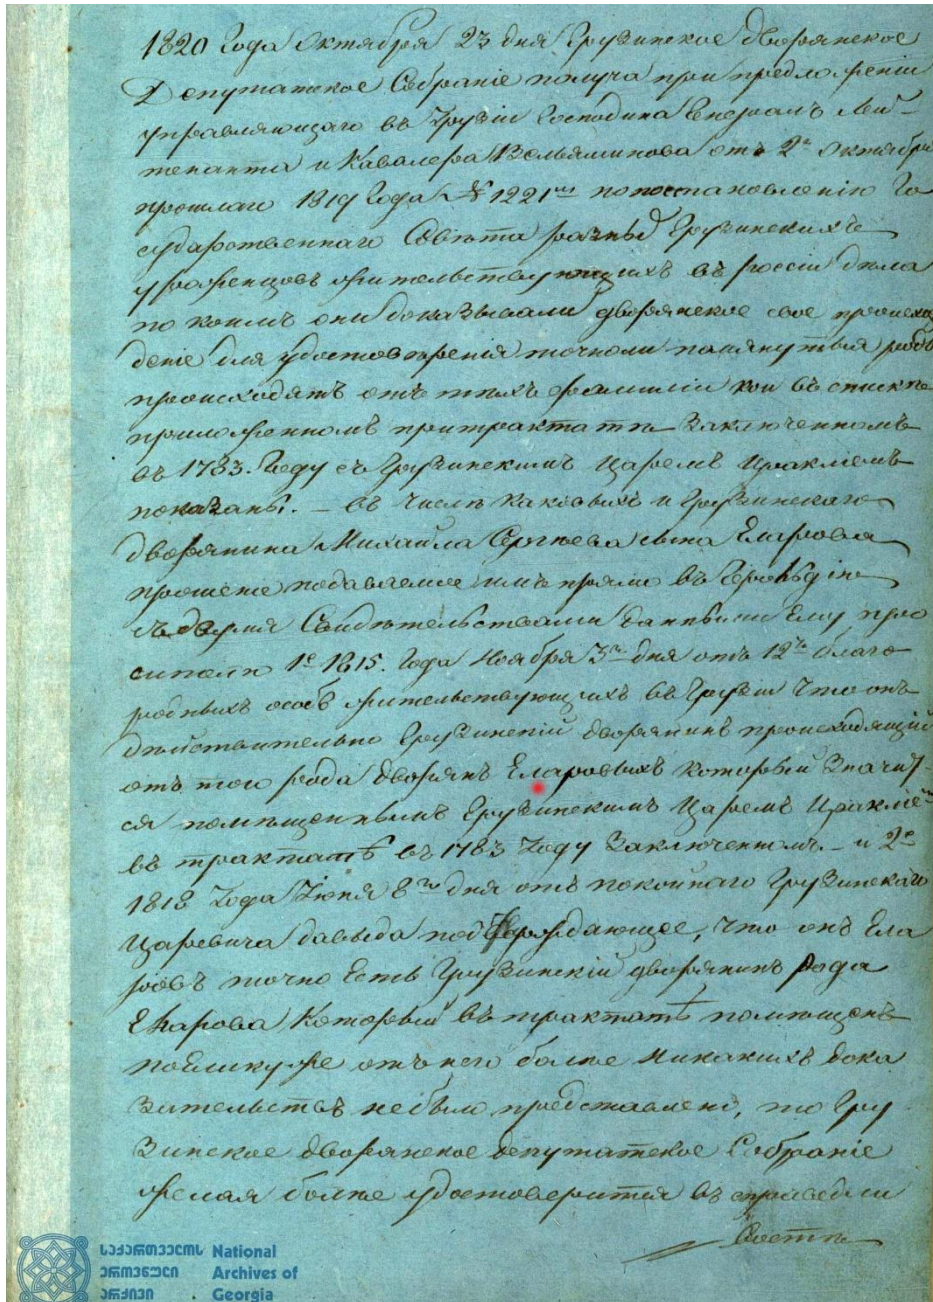 1820 года Октября 23 дня Грузинское дворянское
Депутатское Собраніе получа при предложеніи
управляющаго въ Грузіи Господина Генералъ Лей-
тенанта и Кавалера Вельяминова отъ 2го Октября
прошлаго 1819 года № 1221м по постановленію Го
сударственнаго Совѣта разныхъ Грузинскихъ
уроженцовъ жительствующихъ въ россіи дѣла
по коимъ они доказывали дворянское свое происхож
деніе для удостовѣренія точноли помянутыя роды
происходятъ отъ тѣхъ фамиліи кои въ спискѣ
приложенномъ при трактатѣ заключенномъ
въ 1783. Году съ Грузинскимъ Царемъ Иракліемъ
показаны. – въ числѣ каковыхъ и Грузинскаго
дворянина Михайла Сергѣева сына Еларова
прошеніе подаваемое имъ прямо въ Герольдію
съ двумя Свидѣтельствами данными Ему про
сителю 1е 1815. года Ноября 3го дня отъ 12ти благо
родныхъ особъ жительствующихъ въ Грузіи что онъ
дѣйствительно Грузинскій дворянинъ происходящій
отъ того рода дворянъ Еларовыхъ который значит-
ся помѣщеннымъ Грузинскимъ Царемъ Иракліемъ
въ трактатѣ въ 1783 Году заключенномъ – и 2е
1818 Года Іюня 8го дня отъ покойнаго Грузинскаго
Царевича давыда подтверждающее, что онъ Ела
ровъ точно Есть Грузинскій дворянинъ рода
Еларова который въ трактатѣ помѣщенъ
поелику же отъ него болѣе никакихъ дока
зательствъ небыло представлено, то Гру
зинское дворянское депутатское Собраніе
желая болѣе удостоверится въ справедли
вости
საქართველოს National
ეროვნული Archives of
არქივი Georgia